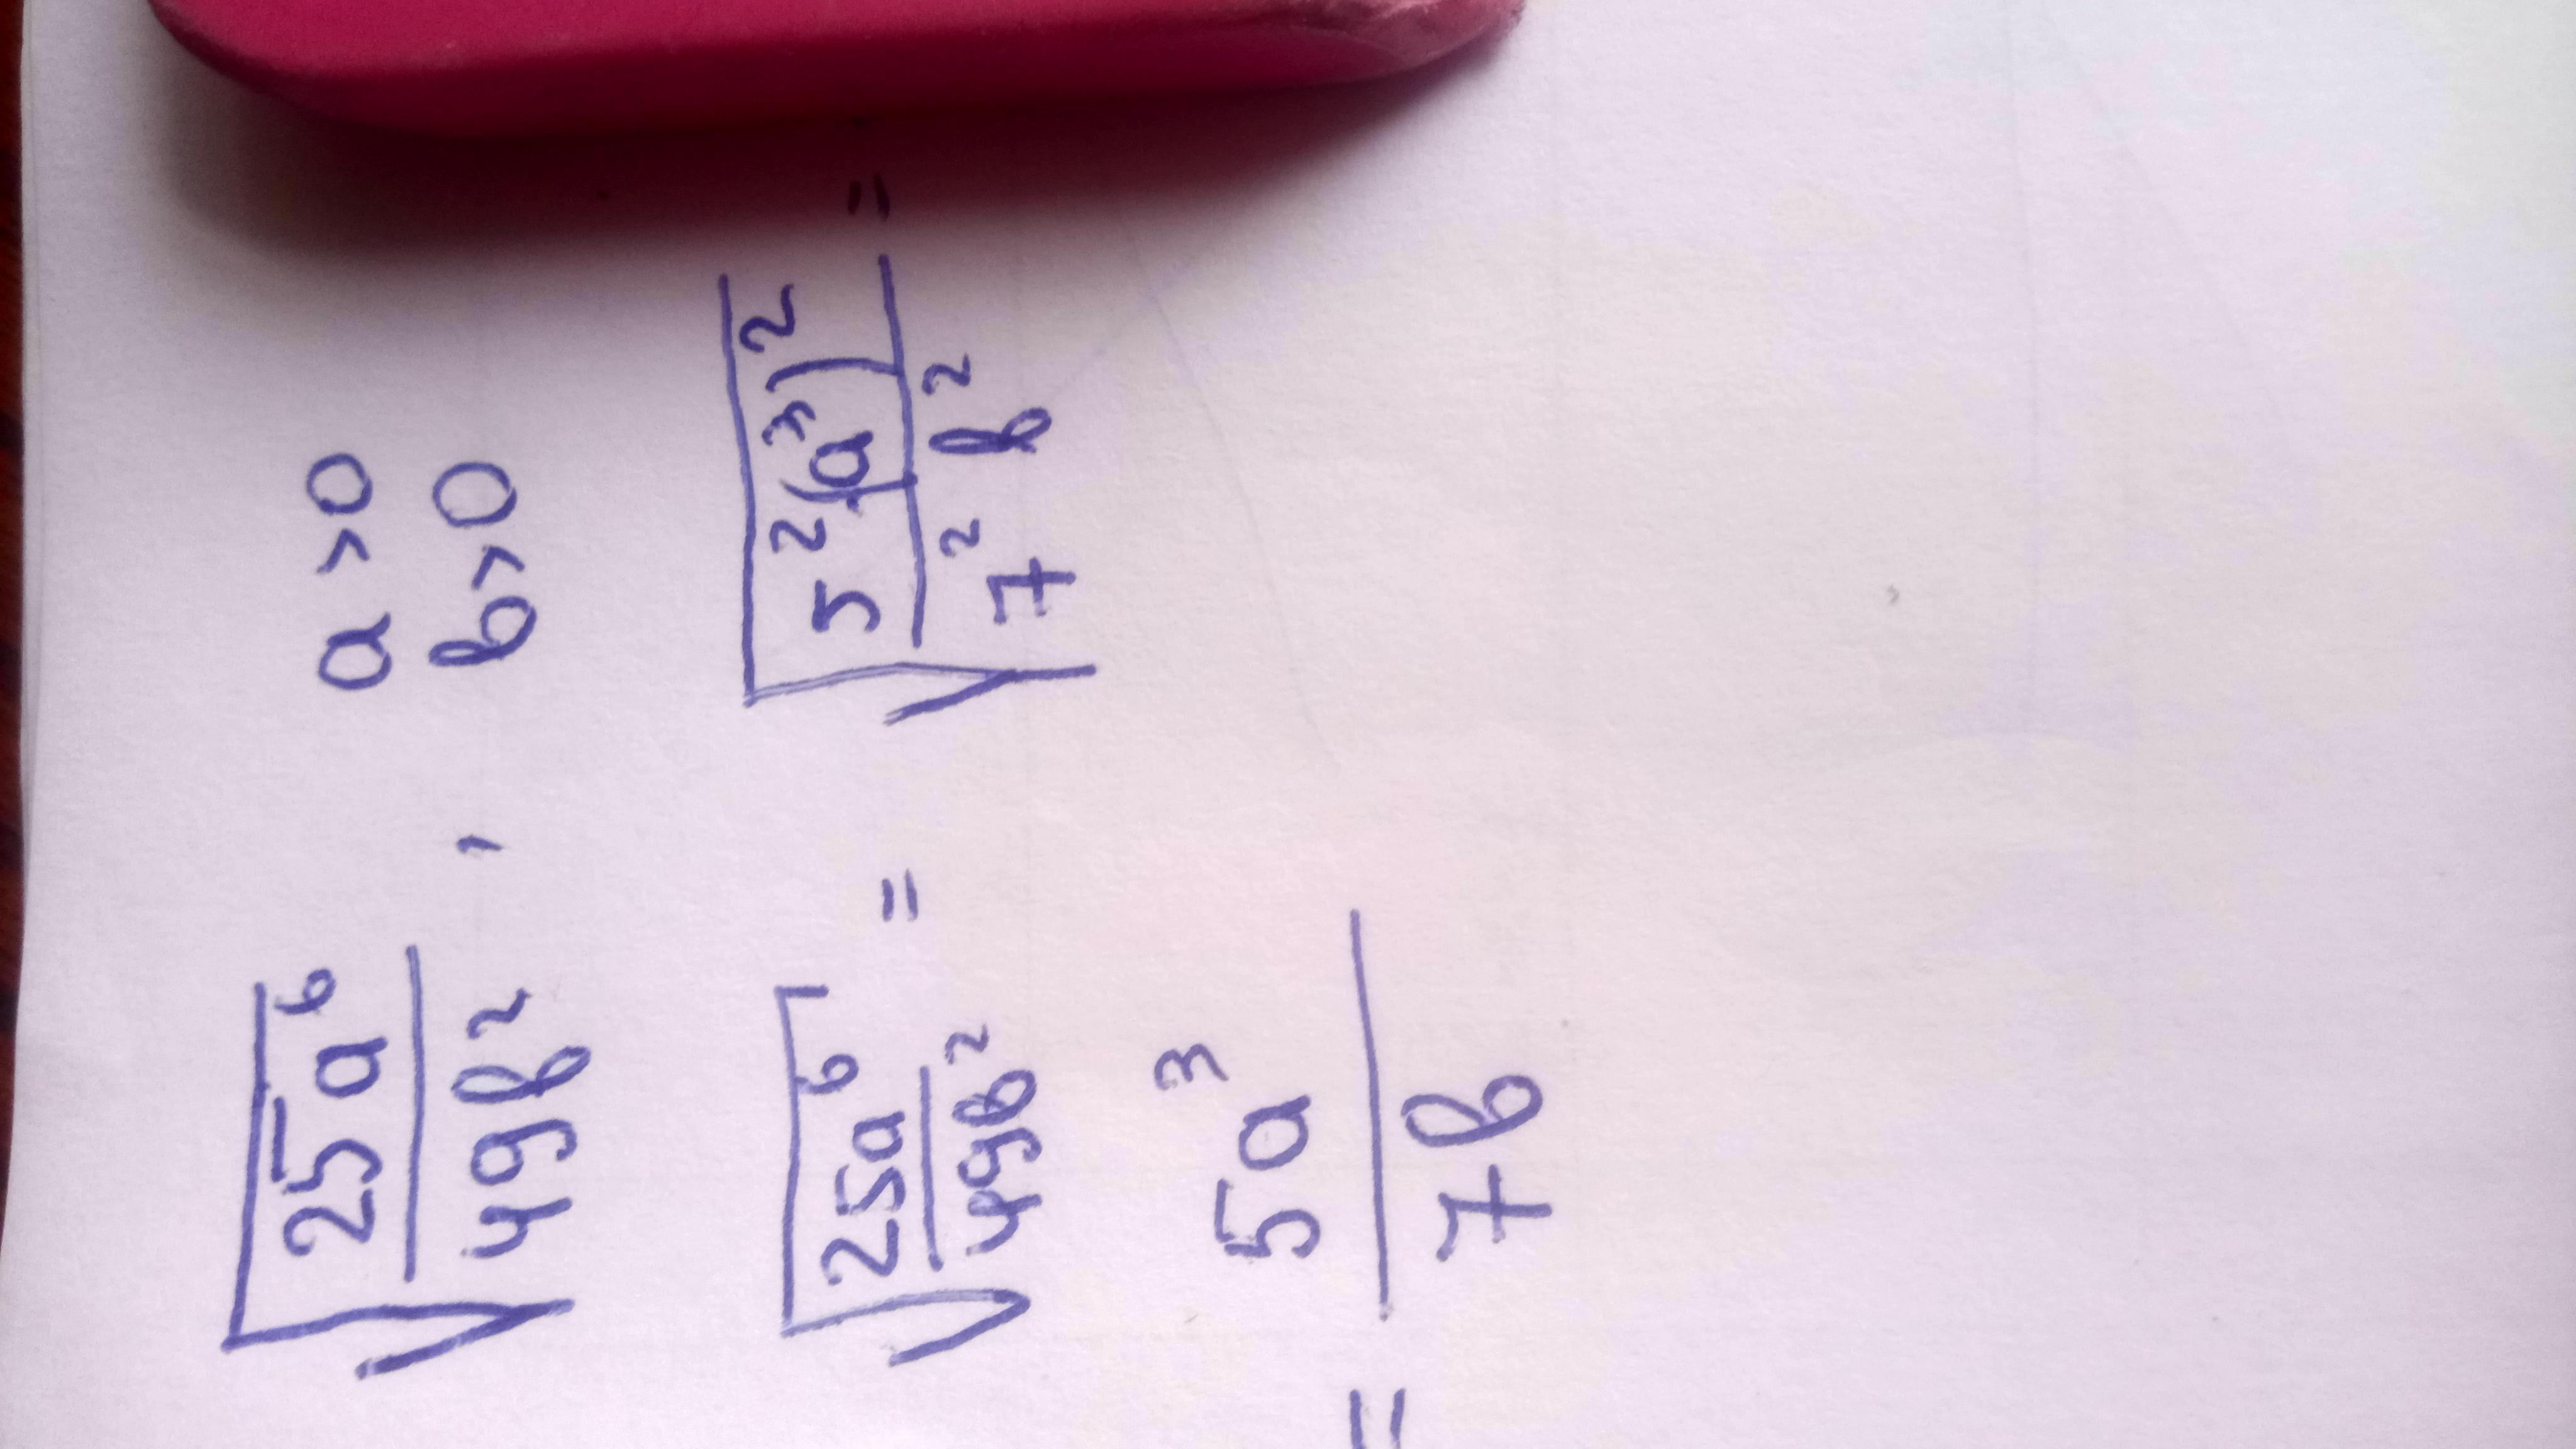 √(25a⁶/49b²), a>0
b>0
√(25a⁶/49b²) = √(5²(a³)²/7²b²) =
= 5a³/7b